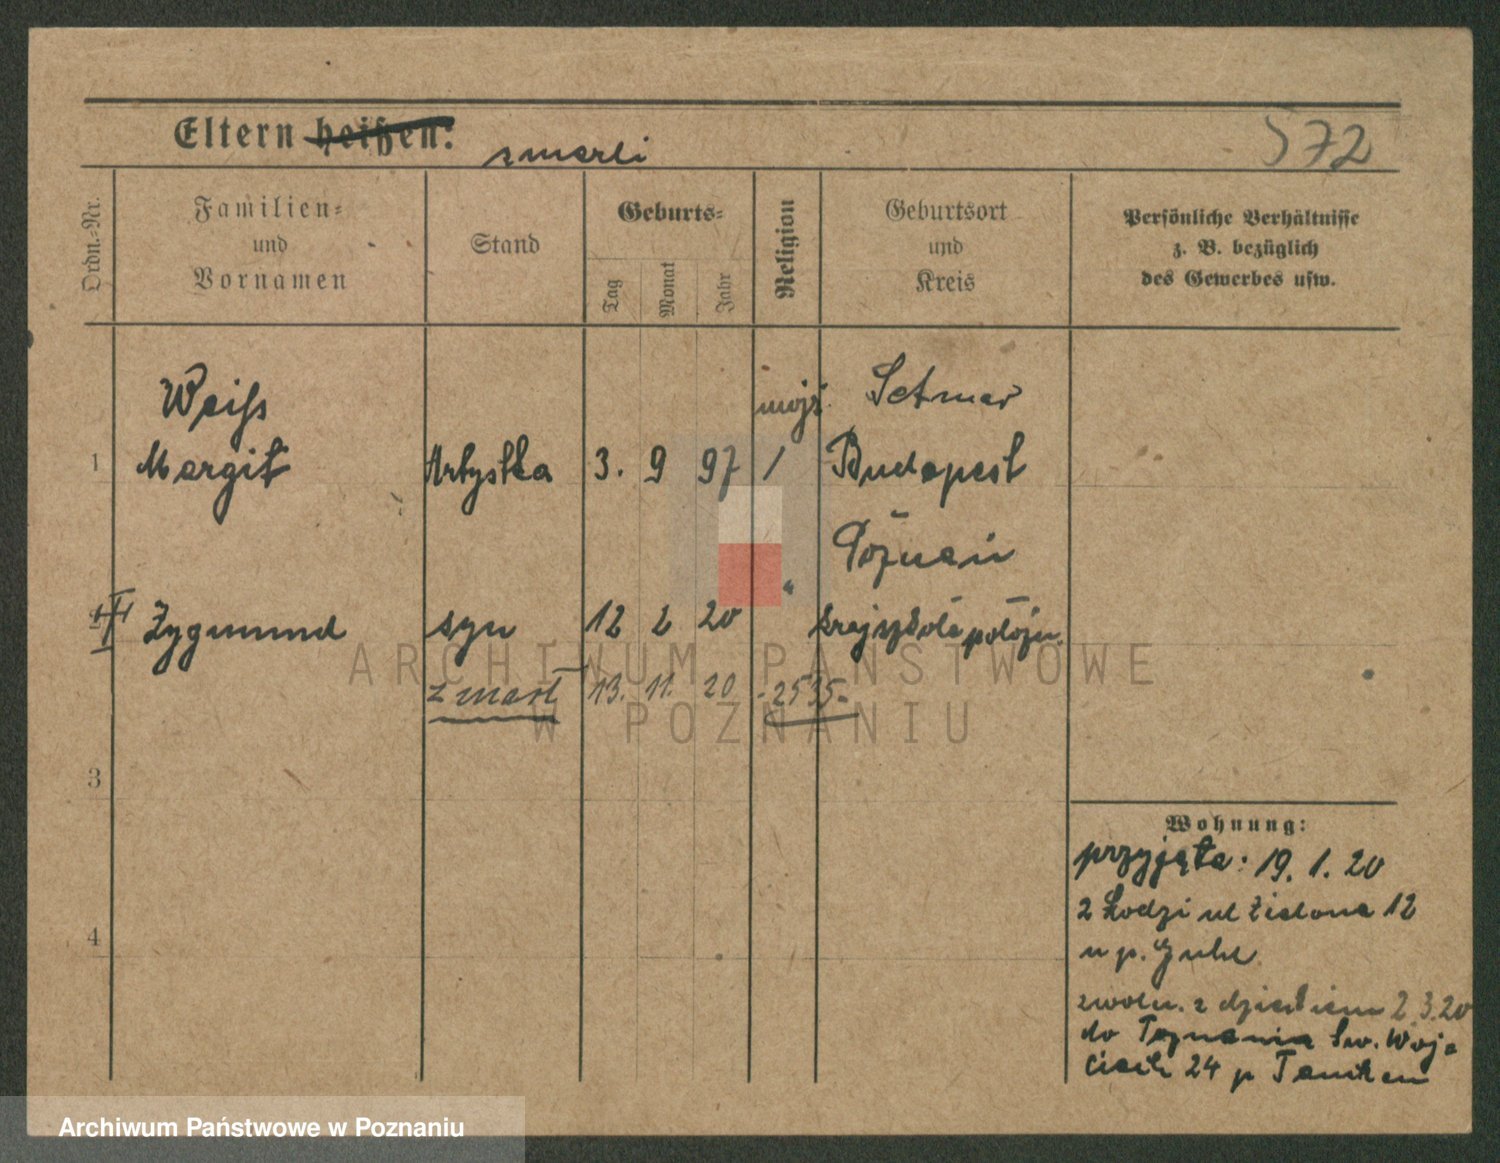 Eltern heißen: zmarli
572
Ordn.-Nr.
Familien-
und
Vornamen
Stand
Geburts-
Tag
Monat
Jahr
Religion
Geburtsort
und
Kreis
Persönliche Verhältnisse
z. B. bezüglich
des Gewerbes usw.
Weiß mojż. Setmar
1 Margit Artystka 3. 9 97 / Budapest
Poznań
II Zygmund syn 12 2 20 " kraj szkoła położn.
zmarł 13. 11. 20 - 2535 -
3
4
Wohnung:
przyjęta: 19. 1. 20
z Łodzi ul Zielona 12
u p.
zwoln. z dzieckiem 2.3.20
do Poznania Św. Woj-
ciech 24 p
ARCHIWUM PAŃSTWOWE
W POZNANIU
Archiwum Państwowe w Poznaniu